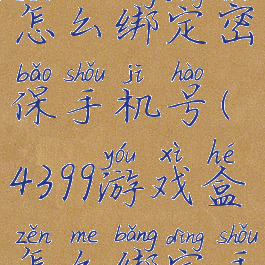 怎么绑定密
bǎo shǒu jī hào
保手机号(
yóu xì hé
4399游戏盒
zěn me bǎng dìng shǒu
怎么绑定手